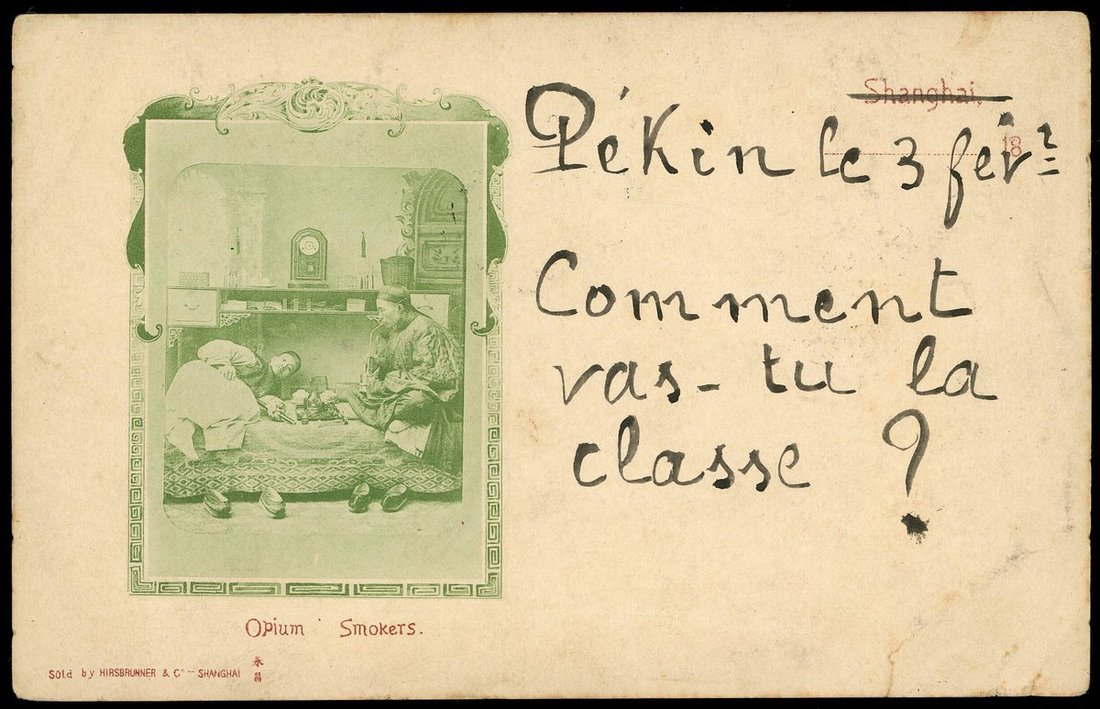 Shanghai,
18
Pékin le 3 févr
Comment
vas-tu la
classe ?
Opium Smokers.
Sold by HIRSBRUNNER & Co – SHANGHAI
永昌